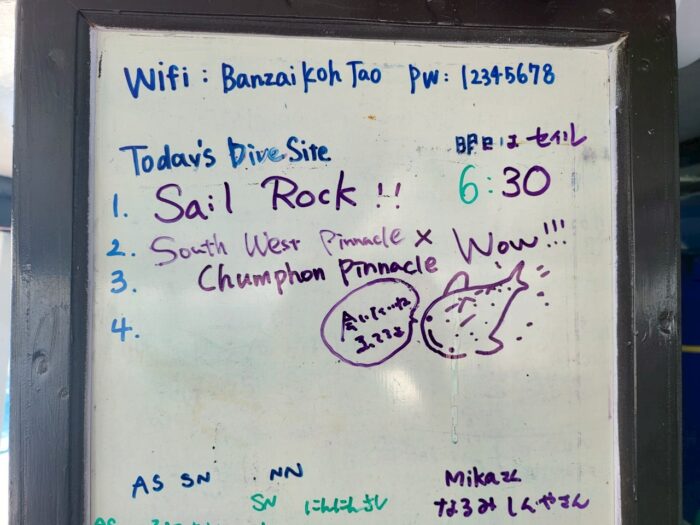 Wifi : Banzai Koh Tao PW: 12345678
Today's Dive Site
明日は セイル
6:30
1. Sail Rock !!
2. South West Pinnacle x
Wow!!!
3. Chumphon Pinnacle
4.
AS SN NN
Mikaさん
SN にんにんさん
なるみ しんやさん
AS